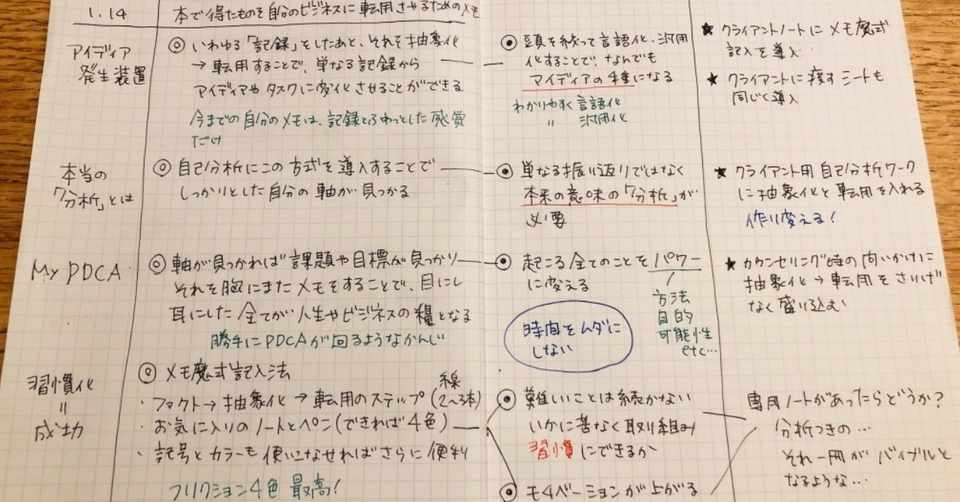 1.14
本で得たものを自分のビジネスに転用させるためのメモ
アイディア
発生装置
◎ いわゆる「記録」をしたあと、それを抽象化
→ 転用することで、単なる記録から
アイディアやタスクに変化させることができる
今までの自分のメモは、記録とふわっとした感覚
だけ
◎ 頭を絞って言語化、汎用
化することで、なんでも
アイディアの種になる
わかりやすく言語化
〃 汎用化
★ クライアントノートにメモ魔式
記入を導入
★ クライアントに渡すシートも
同じく導入
本当の
「分析」とは
◎ 自己分析にこの方式を導入することで
しっかりとした自分の軸が見つかる
◎ 単なる振り返りではなく
本来の意味の「分析」が
必要
★ クライアント用自己分析ワーク
に抽象化と転用を入れる
作り変える!
My PDCA
◎ 軸が見つかれば課題や目標が見つかり
それを胸にまたメモをすることで、目にし
耳にした全てが人生やビジネスの糧となる
勝手にPDCAが回るようなかんじ
◎ 起こる全てのことをパワー
に変える
方法
目的
可能性
etc…
時間をムダに
しない
★ カウンセリング時の問いかけに
抽象化→転用をさりげ
なく盛り込む
習慣化
=
成功
◎ メモ魔式記入法
・ファクト→抽象化→転用のステップ(線2~3本)
・お気に入りのノートとペン(できれば4色)
・記号とカラーも使いこなせればさらに便利
フリクション4色 最高!
◎ 難しいことは続かない
いかに苦なく取り組み
習慣にできるか
◎ モチベーションが上がる
専用ノートがあったらどうか?
分析つきの…
それ一冊がバイブルと
なるような…